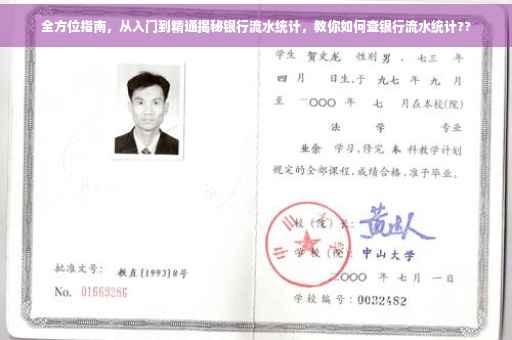 全方位指南，从入门到精通揭秘银行流水统计，教你如何查银行流水统计??
学生 贺文龙 性别 男 、七三 年
四 月 日生,于 九七 年 九 月
至 二〇〇〇 年 七 月在本校(院)
法 学 专业
业余 学习,修完 本 科教学计划
规定的全部课程,成绩合格,准予毕业。
校 (院) 长:
学 校 (院): 中山大学
二〇〇〇 年 七 月 一 日
学校编号: 0032482
批准文号: 教直[1993]8号
No. 01663286